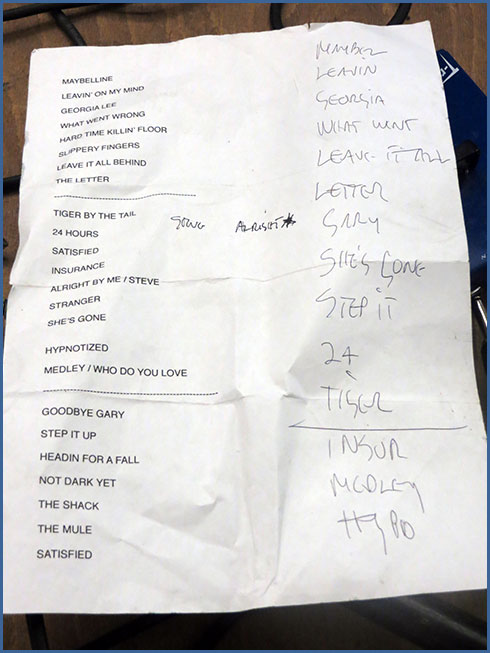 MAYBELLINE
LEAVIN' ON MY MIND
GEORGIA LEE
WHAT WENT WRONG
HARD TIME KILLIN' FLOOR
SLIPPERY FINGERS
LEAVE IT ALL BEHIND
THE LETTER
TIGER BY THE TAIL
24 HOURS
SATISFIED
INSURANCE
ALRIGHT BY ME / STEVE
STRANGER
SHE'S GONE
HYPNOTIZED
MEDLEY / WHO DO YOU LOVE
GOODBYE GARY
STEP IT UP
HEADIN FOR A FALL
NOT DARK YET
THE SHACK
THE MULE
SATISFIED
ALRIGHT
MAYBEL
LEAVIN
GEORGIA
WHAT WENT
LEAVE IT ALL
LETTER
GARY
SHE'S GONE
STEP IT
24
TIGER
INSUR
MEDLEY
HYPO